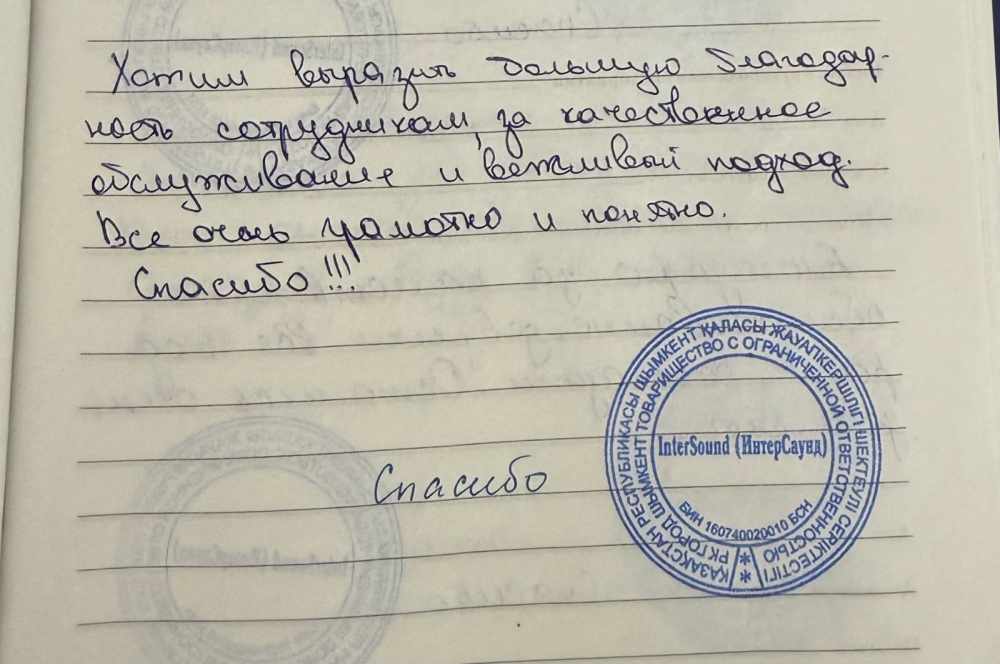 Хотим выразить большую благодар-
ность сотрудникам, за качественное
обслуживание и вежливый подход.
Все очень грамотно и понятно.
Спасибо!!!
Спасибо
ҚАЗАҚСТАН РЕСПУБЛИКАСЫ ШЫМКЕНТ ҚАЛАСЫ ЖАУАПКЕРШІЛІГІ ШЕКТЕУЛІ СЕРІКТЕСТІГІ
РК ГОРОД ШЫМКЕНТ ТОВАРИЩЕСТВО С ОГРАНИЧЕННОЙ ОТВЕТСТВЕННОСТЬЮ
InterSound (ИнтерСаунд)
БИН 160740020010 БСН